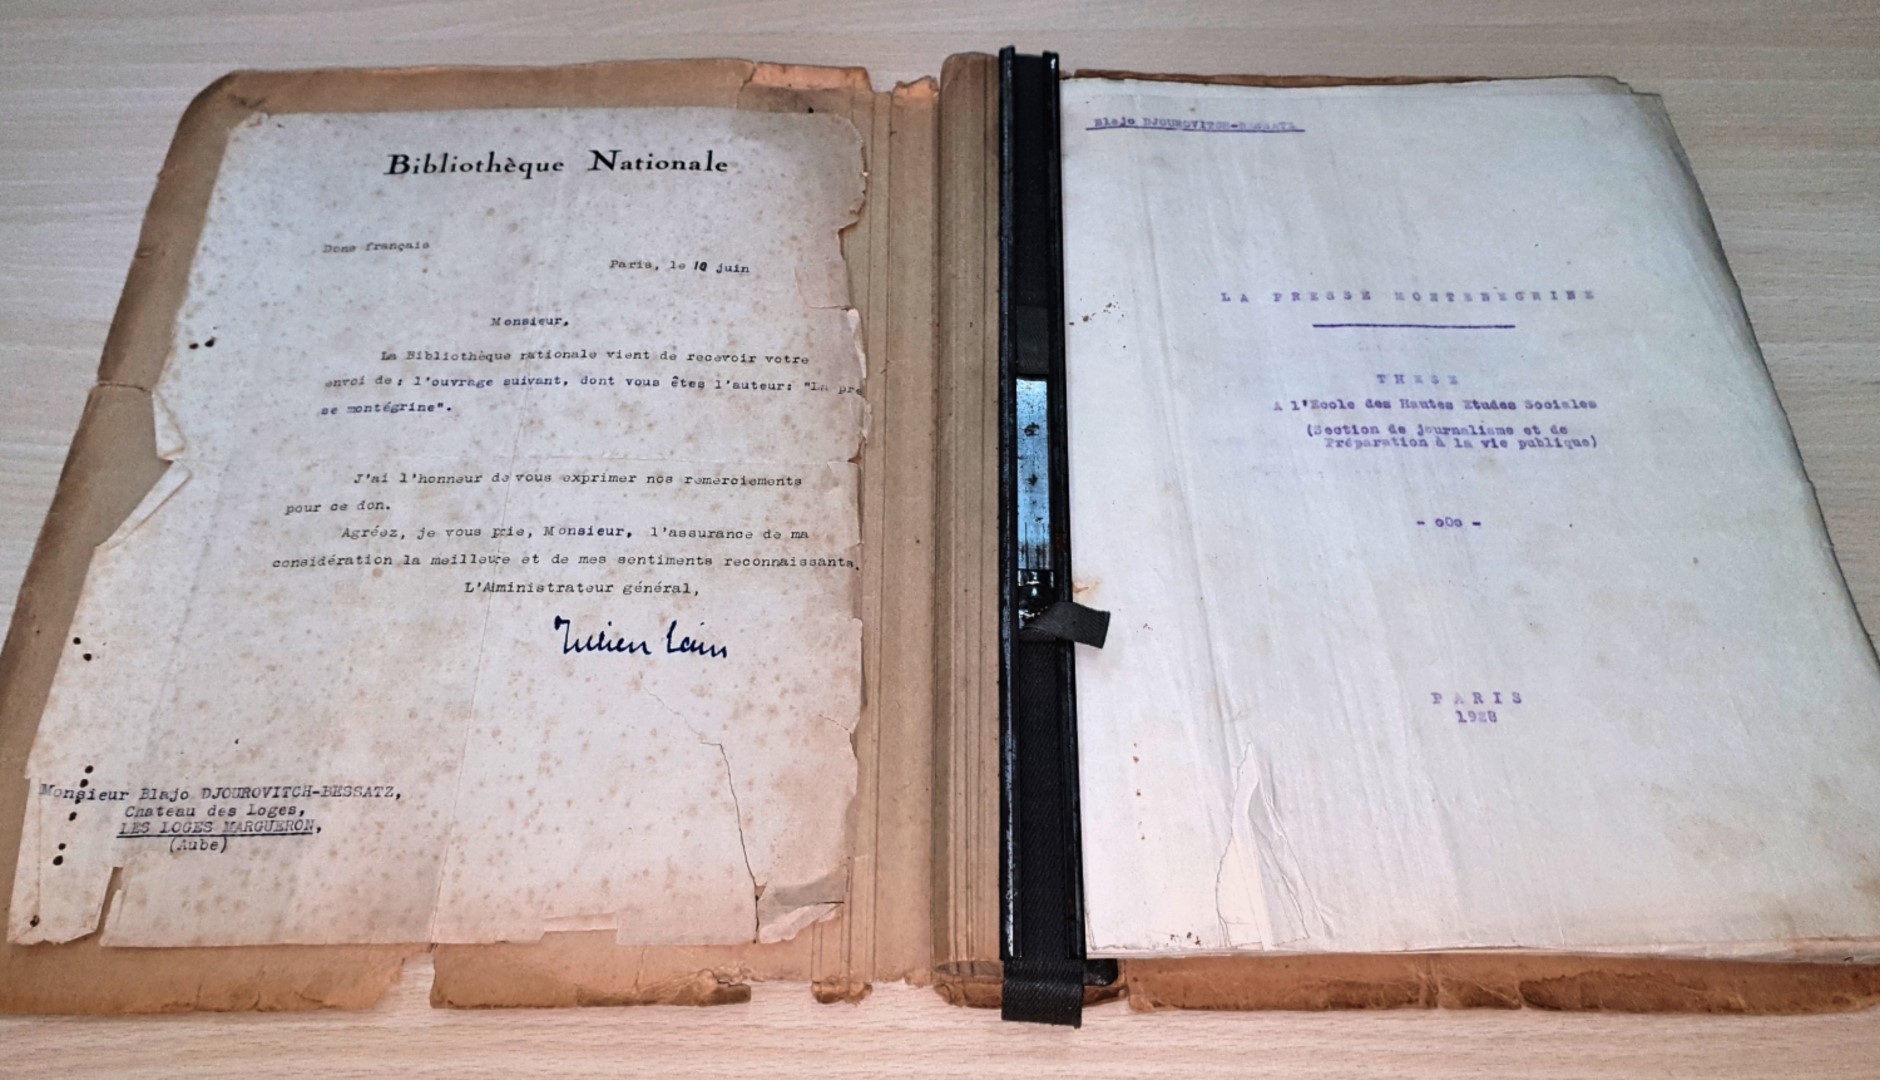 Bibliothèque Nationale
Dons français
Paris, le 10 juin
Monsieur,
La Bibliothèque nationale vient de recevoir votre
envoi de : l'ouvrage suivant, dont vous êtes l'auteur: "La pre
se montégrine".
J'ai l'honneur de vous exprimer nos remerciements
pour ce don.
Agréez, je vous prie, Monsieur, l'assurance de ma
considération la meilleure et de mes sentiments reconnaissants.
L'Aministrateur général,
Julien Cain
Monsieur Blajo DJOUROVITCH-BESSATZ,
Chateau des Loges,
LES LOGES MARGUERON,
(Aube)
Blajo DJOUROVITCH-BESSATZ
LA PRESSE MONTENEGRINE
THESE
A l'Ecole des Hautes Etudes Sociales
(Section de journalisme et de
Préparation à la vie publique)
- oOo -
PARIS
1928